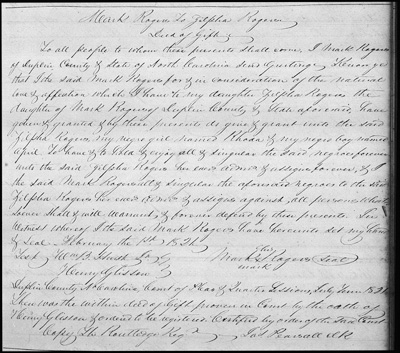 Mark Rogers To Zilpha Rogers
Deed of Gift
To all people to whom these presents Shall come I Mark Rogers
of Duplin County & State of North Carolina Send Greeting Know ye
that I the said Mark Rogers for & in consideration of the natural
love & affection which I have to my daughter Zilpha Rogers the
daughter of Mark Rogers of Duplin County & State aforesaid have
given & granted & by these presents do give & grant unto the said
Zilpha Rogers my negro girl named Rhoda & my negro boy named
April To have & to hold & enjoy all & singular the said negroes forever
unto the said Zilpha Rogers her & assigns forever, & I
the said Mark Rogers all & singular the aforesaid negroes to the said
Zilpha Rogers her & assigns against all persons Whom
Soever Shall & will warrant & forever defend by these presents In
Witness whereof I the said Mark Rogers have hereunto set my hand
& Seal February the 1st
Test his
Henry Glisson Mark Rogers Seal
mark
Duplin County No Carolina Court of Pleas & Quarter Sessions July Term
Then was the within deed of Gift proven in Court by the oath of
Henry Glisson & ordered to be registered Certified by order of the Court
Copy Routledge Reg Jas Pearsall